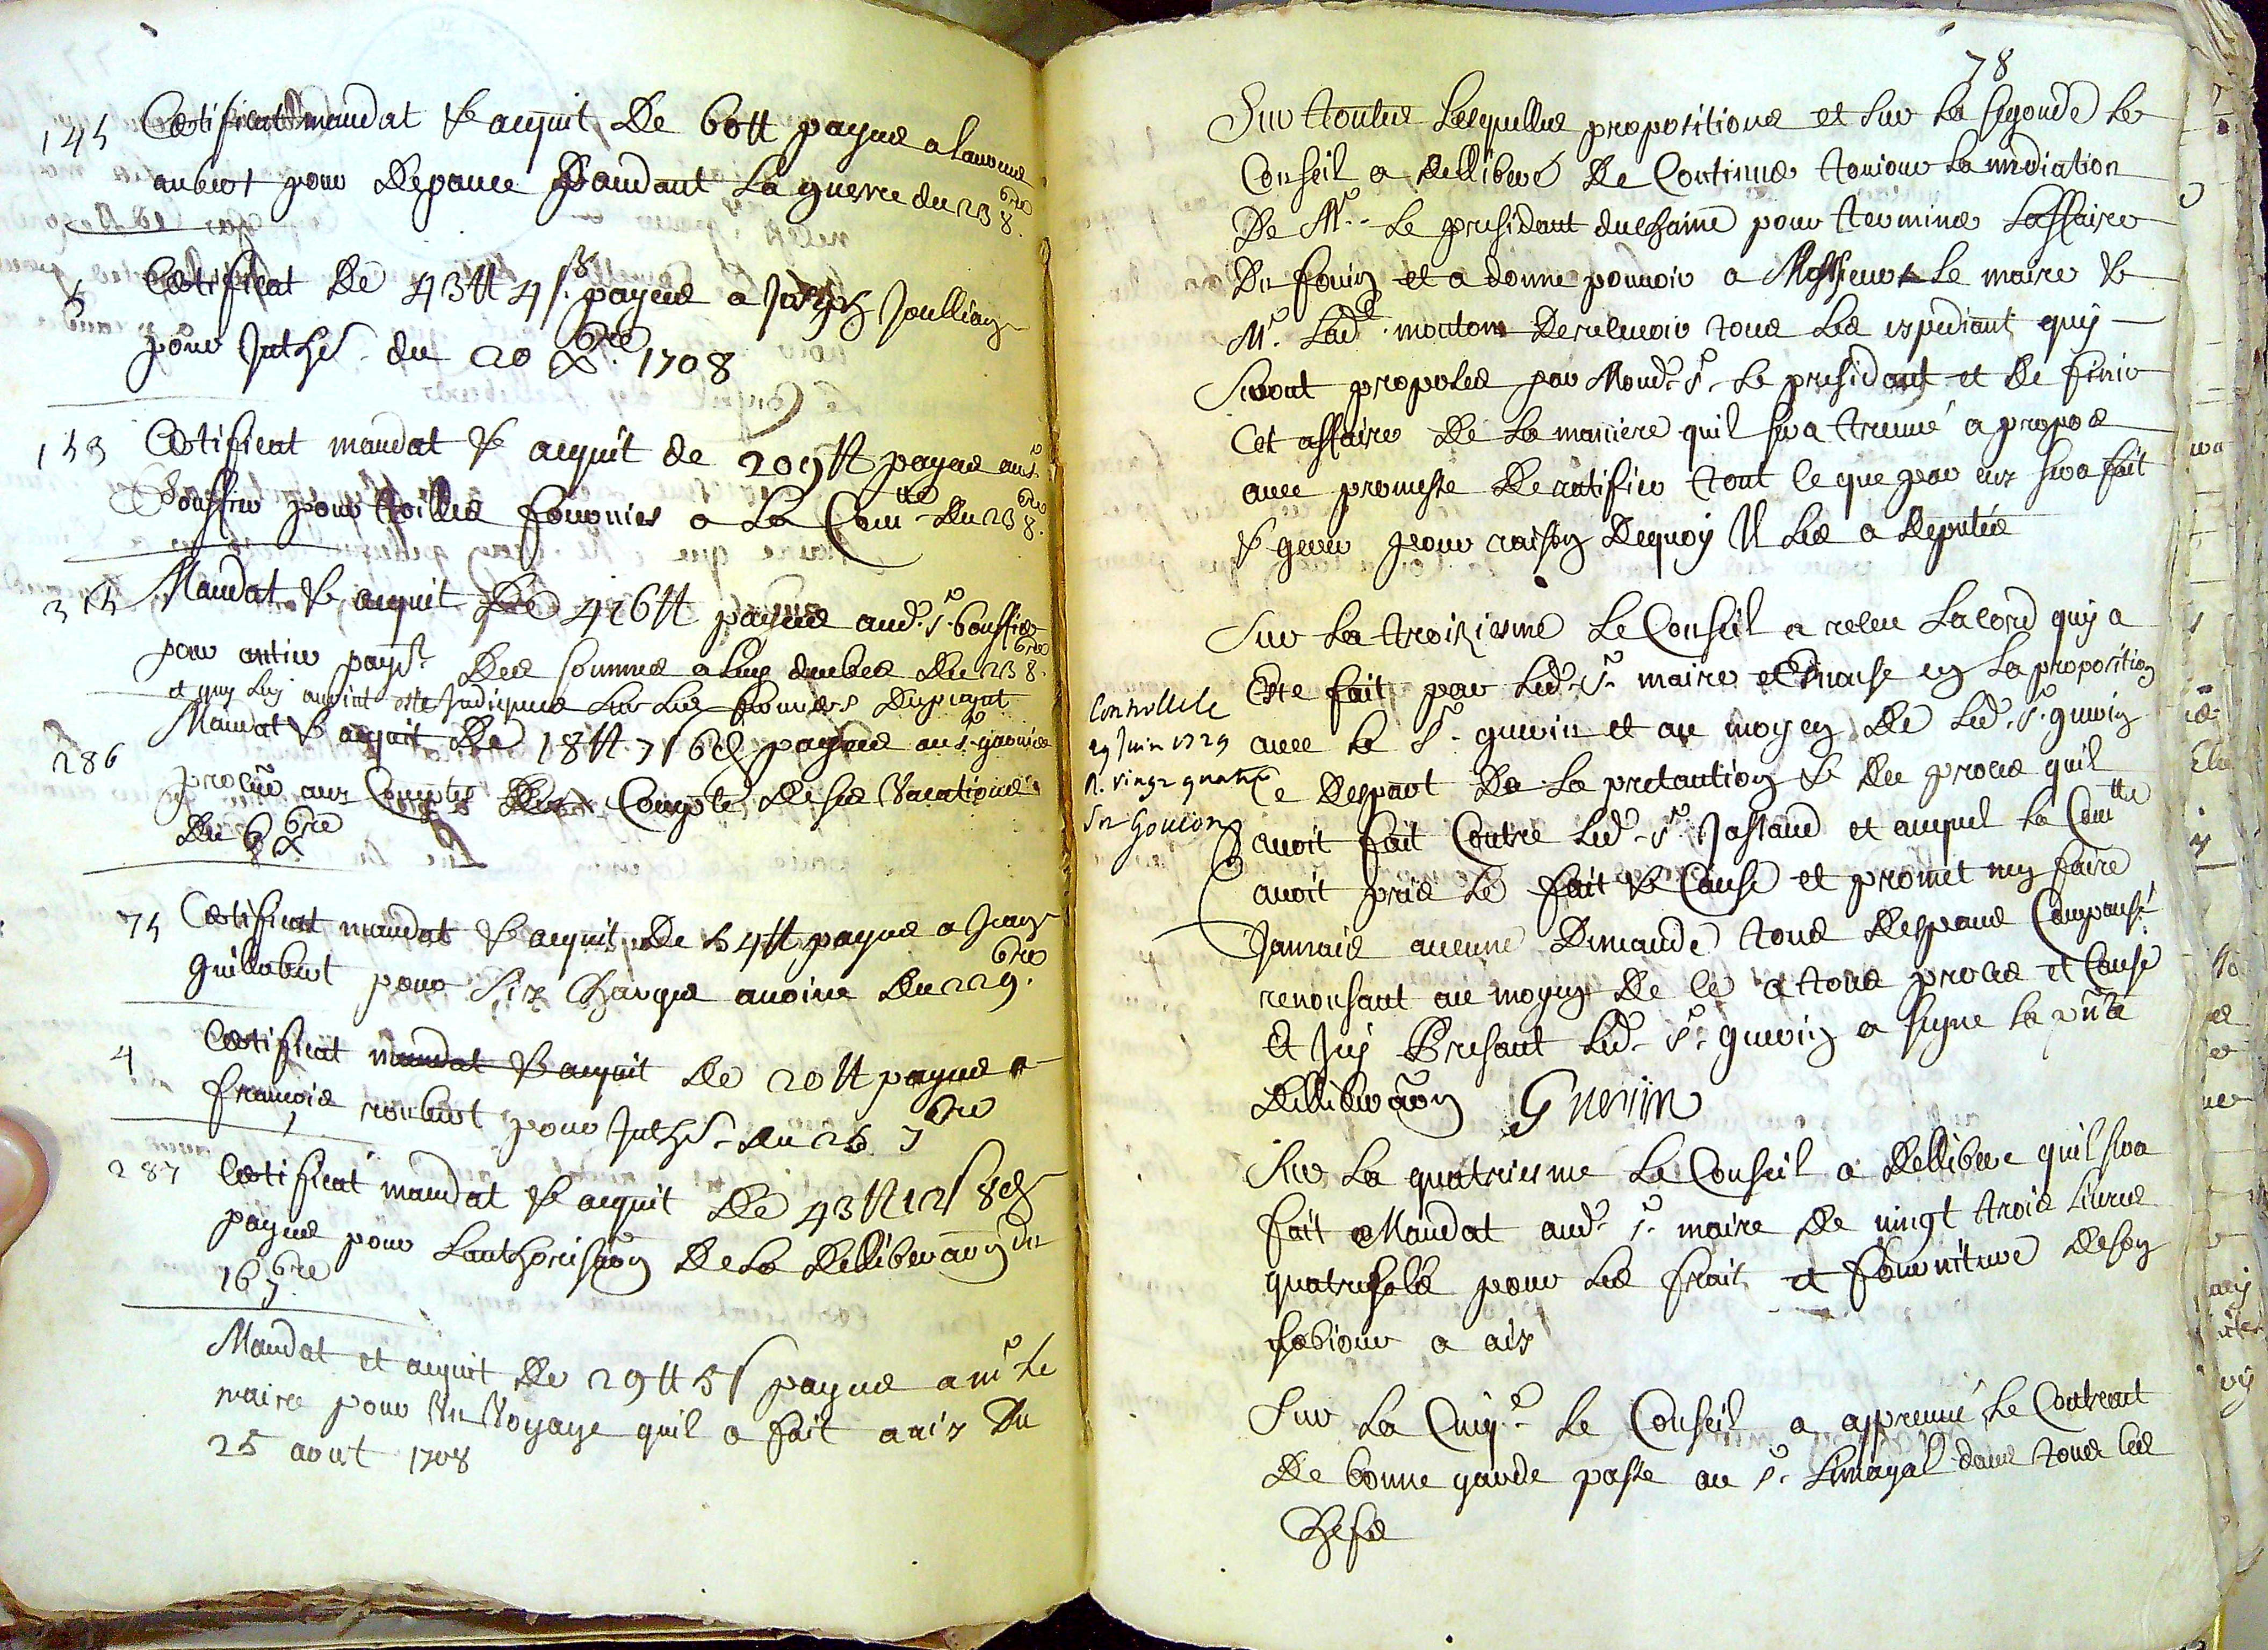 145 Certificat mandat & acquit De 60 lt payees a
aubert pour Depance pandant La guerre du 23 8bre
5 Certificat De 43 lt 4 s. payees a Joulliay
pour Inthst. du 20 Xbre 1708
153 Certificat mandat & acquit de 209 lt payees au sr
Bouffier pour toilles fournies a La Comtte Du 23 8bre
315 Mandat & acquit De 426 lt payees aud. sr. bouffier
pour antier payt. Des sommes a luy deubes Du 23 8bre
et quy luy avoint esté Indiquees sur les
286 Mandat & acquit De 18 lt 7 s 6 d payees au sr
procur aux Comptes Du Compte De ses Vacations
Du 6 Xbre
75 Certificat mandat & acquit De 54 lt payees a Jean
guillibert pour six charges avoine Du 22 9bre
4 Certificat mandat & acquit De 20 lt payees a
francois roubert pour Inthst. Du 26 7bre
287 Certificat mandat & acquit De 43 lt 12 s 8 d
payees pour Lauthorisaõn De La Delliberaõn du
16 7bre
Mandat et acquit De 29 lt 5 s payees a mr Le
maire pour Un Voyage quil a fait a aix Du
25 aout 1708
78
Sur touttes Lesquelles propositions et sur La segonde Le
Conseil a delliberé De Continuer toujour La mediation
De Mr. Le presidant duchaine pour terminer Laffaire
Du fouin et a donne pouvoir a Messieurs Le maire &
Mr. Lad. moutons De relevoir tous Les expediant quy
Seront proposes par Mond. sr. Le presidant et De finir
Cet affaire De La maniere quil sera treuvé a propos
avec promesse De ratifier tout Ce que par eux sera fait
& gerer pour raison Dequoy Il Les a Deputés
Sur La troisiesme Le Conseil a releu Lacord quy a
Este fait par Led. sr. maire et Enoncé en La proposition
avec Le Sr. guerin et au moyen De Led. sr. guerin
Ce Depart De La pretantion & Du proces quil
avoit fait Contre Led. sr. Jassaud et auquel La Comtte
avoit pris Le fait & Cause et promet ny faire
Jamais aucune Demande tous Despans Compansé
renonsant au moyen De Ce a tous proces et Cause
Et Icy Presant Led. sr. guerin a signe La pñte
Delliberaõn Guerin
Controllé le
29 Juin 1729
R. vingt quatre
sr Goujon
Sur La quatriesme Le Conseil a Dellibere quil sera
fait Mandat aud. sr. maire De vingt trois Livres
quatre sols pour Les frait et fourniture De son
sesiour a aix
Sur La Cinqe. Le Conseil a appreuvé Le Contrant
De bonne garde passe au sr. Limayal dans tous Les
Chefs